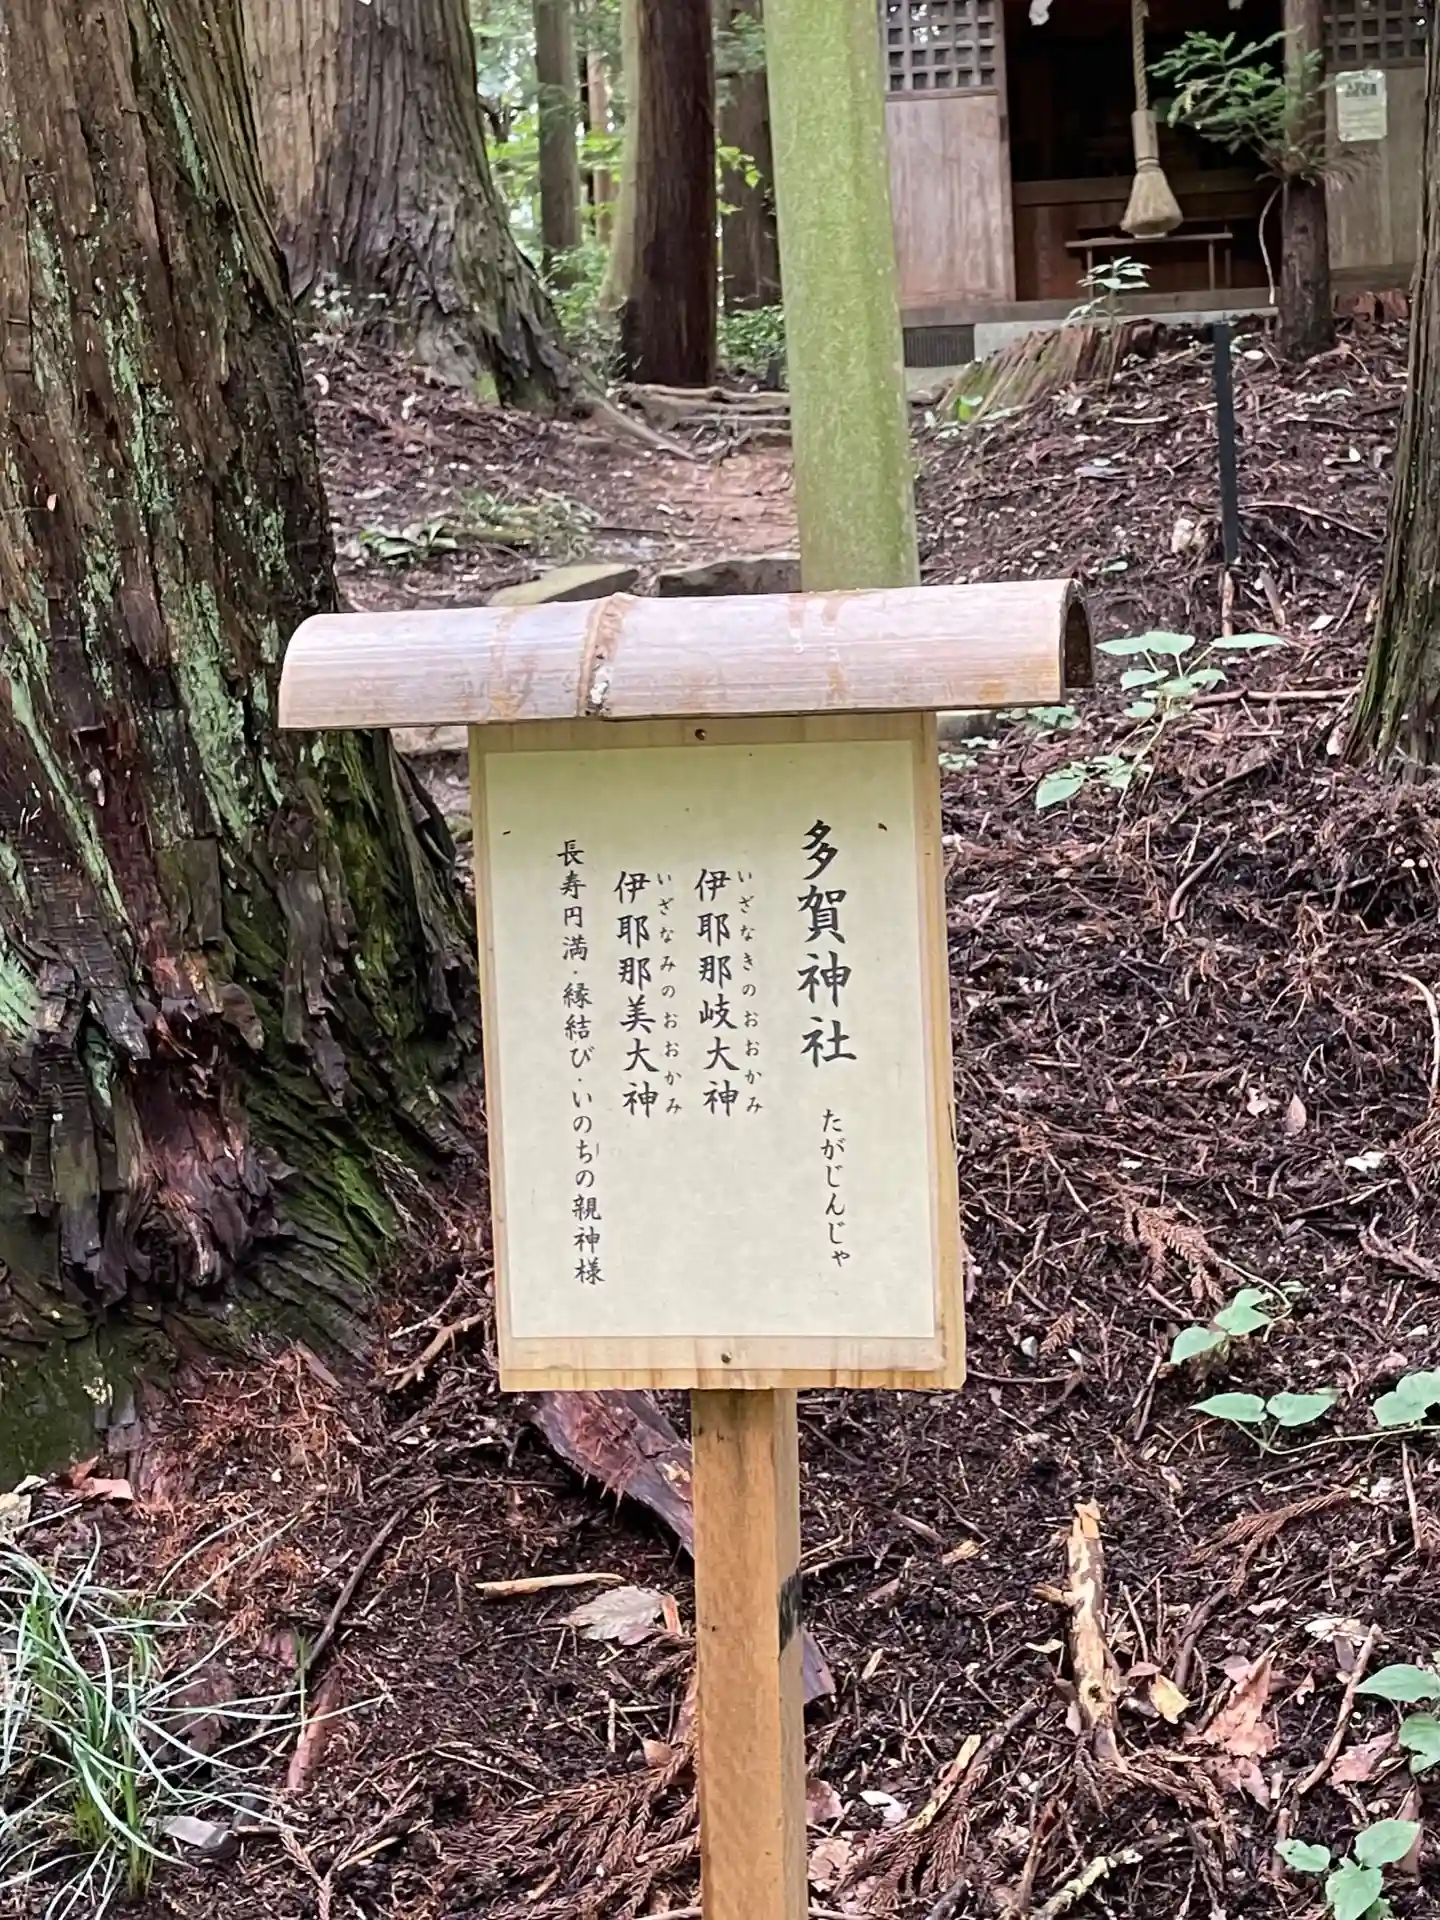 多賀神社 たがじんじゃ
いざなきのおおかみ
伊耶那岐大神
いざなみのおおかみ
伊耶那美大神
長寿円満・縁結び・いのちの親神様